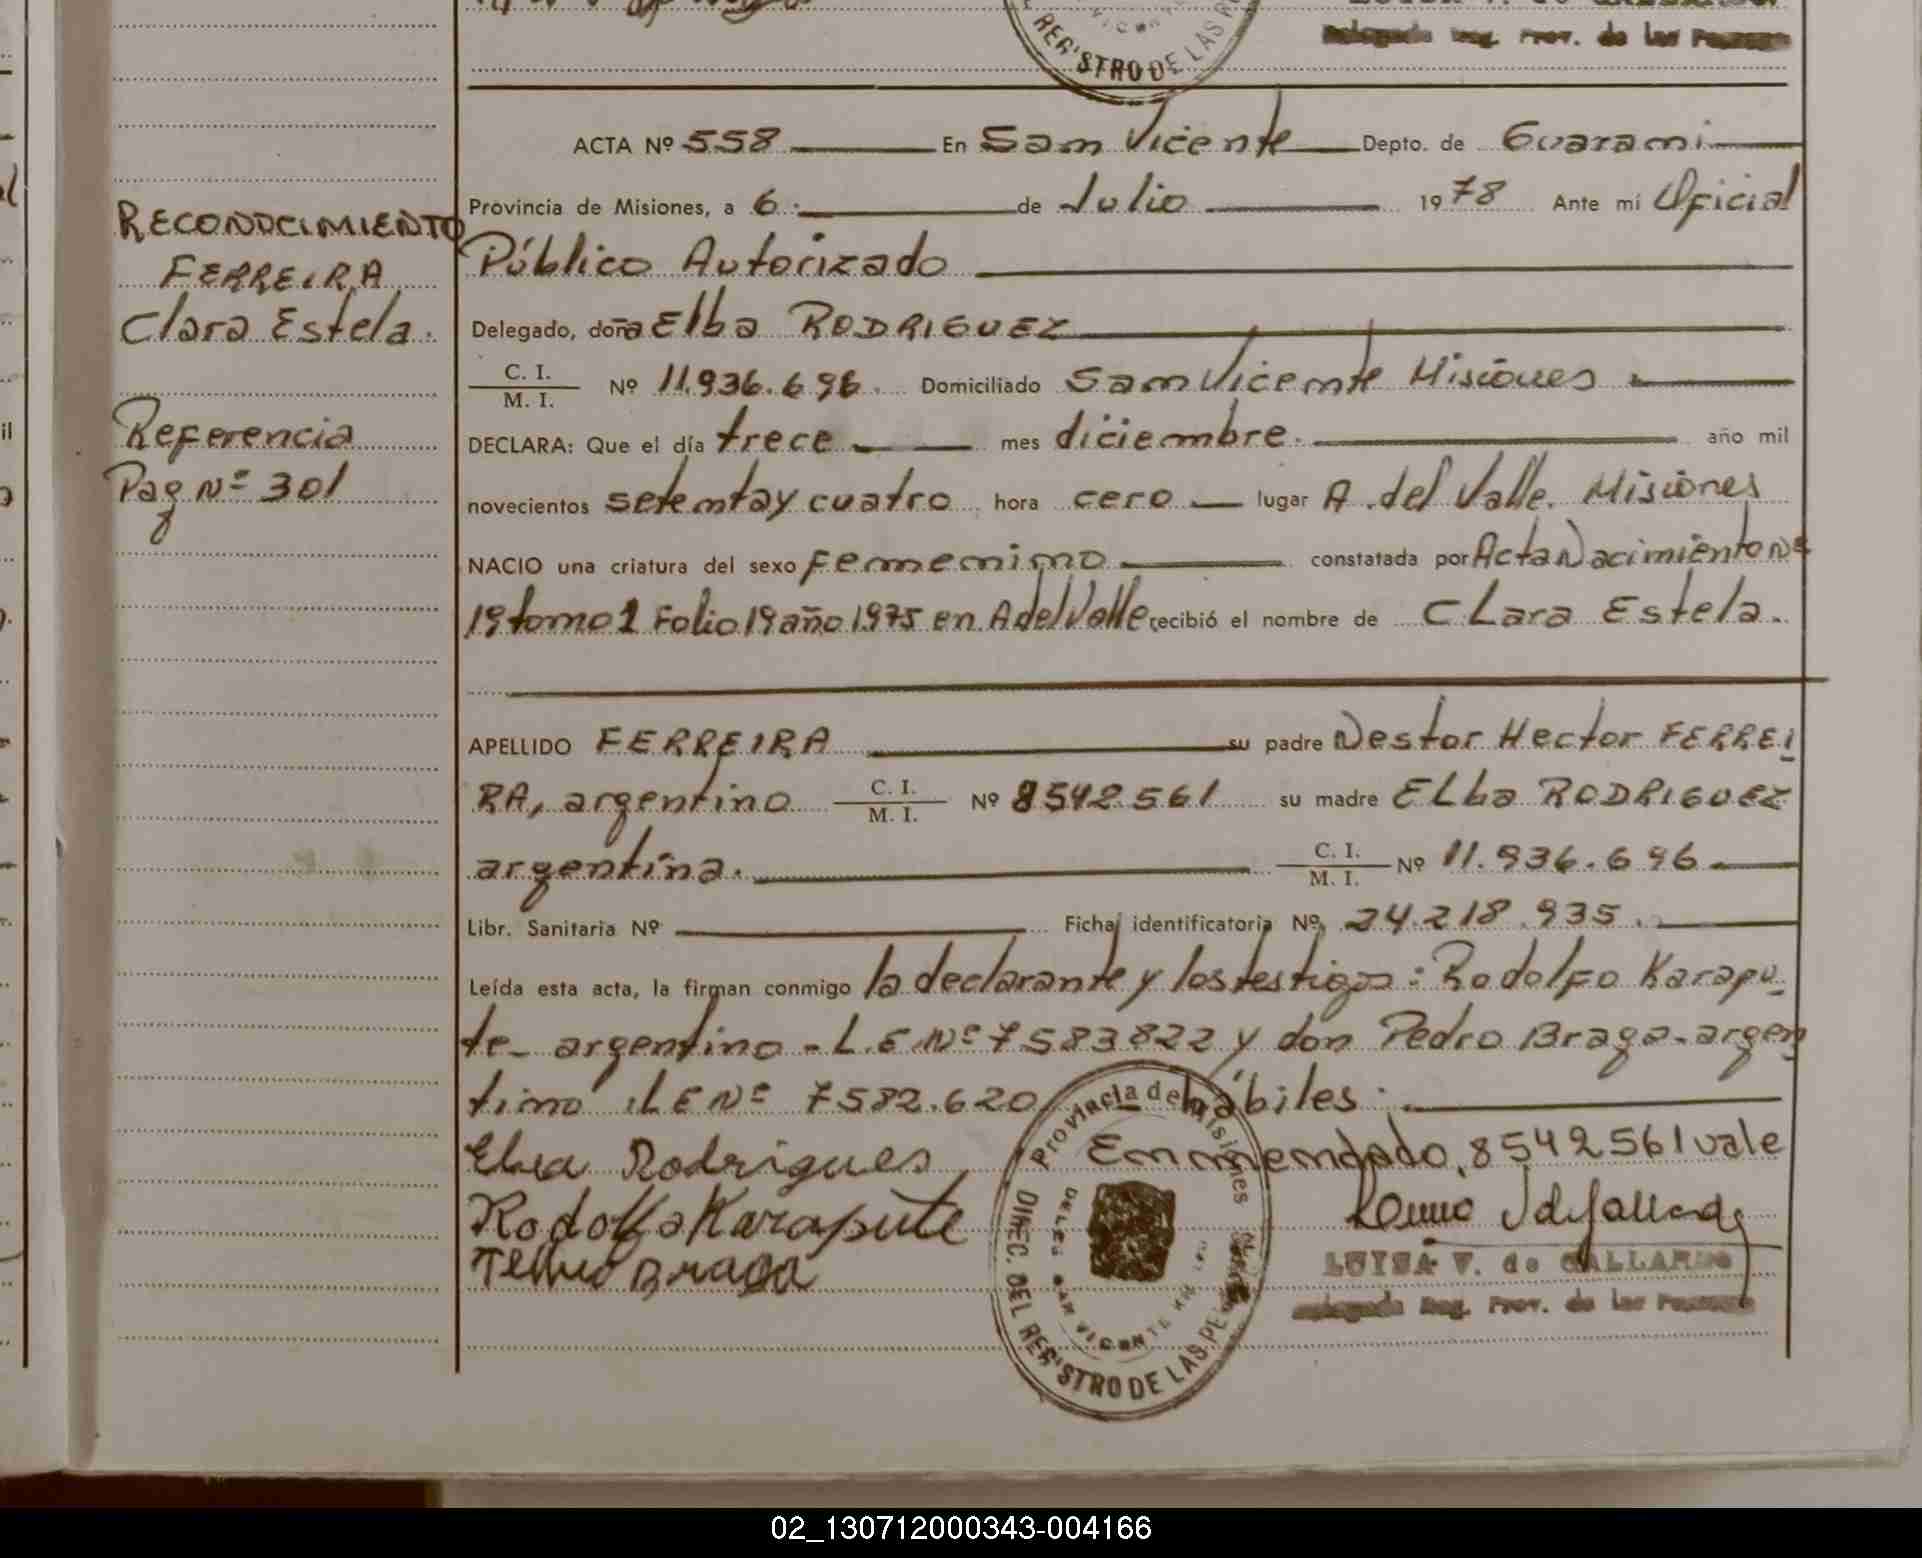 REGISTRO DE LAS
Delegada Reg. Prov. de las Personas
ACTA Nº 558 En San Vicente Depto. de Guaraní
Provincia de Misiones, a 6 de Julio 1978 Ante mí Oficial
Público Autorizado
Delegado, doña Elba RODRIGUEZ
C. I.
M. I. Nº 11.936.696. Domiciliado San Vicente Misiones
DECLARA: Que el día trece mes diciembre. año mil
novecientos setenta y cuatro hora cero lugar A. del Valle. Misiones
NACIO una criatura del sexo femenino constatada por Acta Nacimiento Nº
19 tomo 1 Folio 19 año 1975 en A del Valle recibió el nombre de Clara Estela.
APELLIDO FERREIRA su padre Nestor Hector FERREI
RA, argentino C. I.
M. I. Nº 8542.561 su madre Elba RODRIGUEZ
argentina. C. I.
M. I. Nº 11.936.696
Libr. Sanitaria Nº Ficha identificatoria Nº 24.218.935.
Leída esta acta, la firman conmigo la declarante y los testigos: Rodolfo Karapu-
te- argentino - L.E.Nº 7583822 y don Pedro Braga - argen
tino .LE Nº 7582.620 hábiles.
Enmendado, 8542561 vale
Elva Rodrigues
Rodolfo Karapute
Braga
LUISA V. de GALLARDO
Delegada Reg. Prov. de las Personas
Provincia de Misiones
DIREC. DEL REGISTRO DE LAS PE
SAN VICENTE
RECONOCIMIENTO
FERREIRA
Clara Estela.
Referencia
Pag Nº 301
02_130712000343-004166